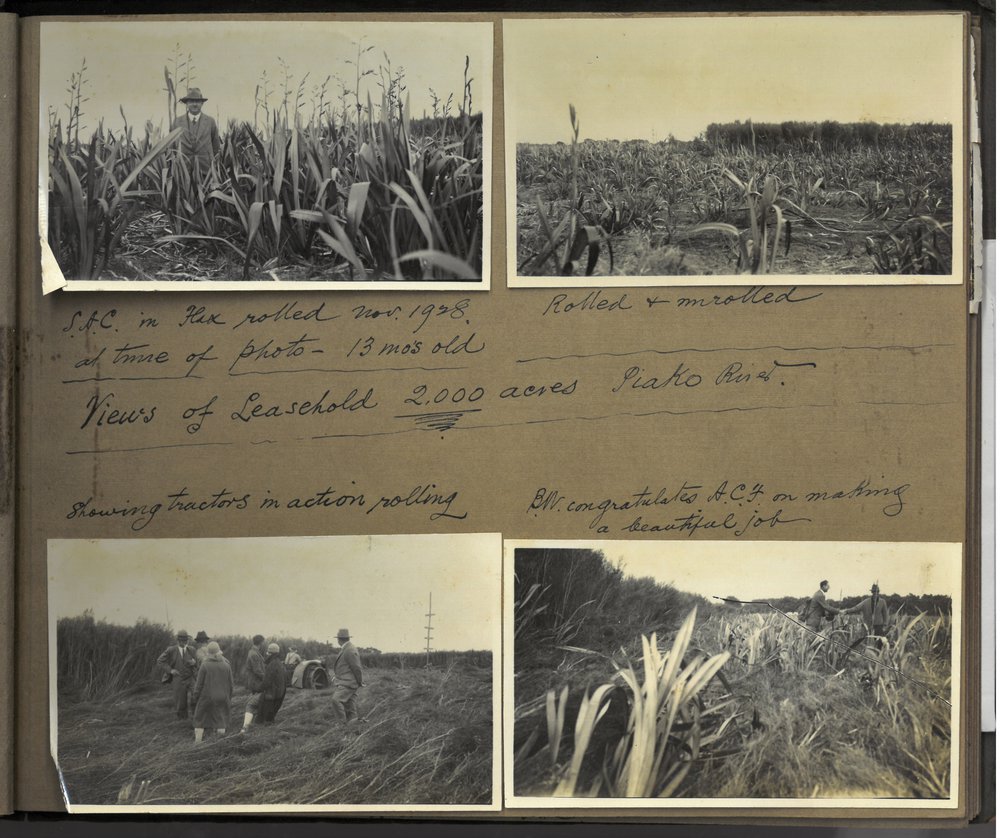 S.A.C. in Flax rolled Nov. 1928.
at time of photo - 13 mo's old
Rolled & unrolled
Views of Leasehold 2,000 acres Piako River.
Showing tractors in action rolling
B.W. congratulates A.C.F. on making
a beautiful job